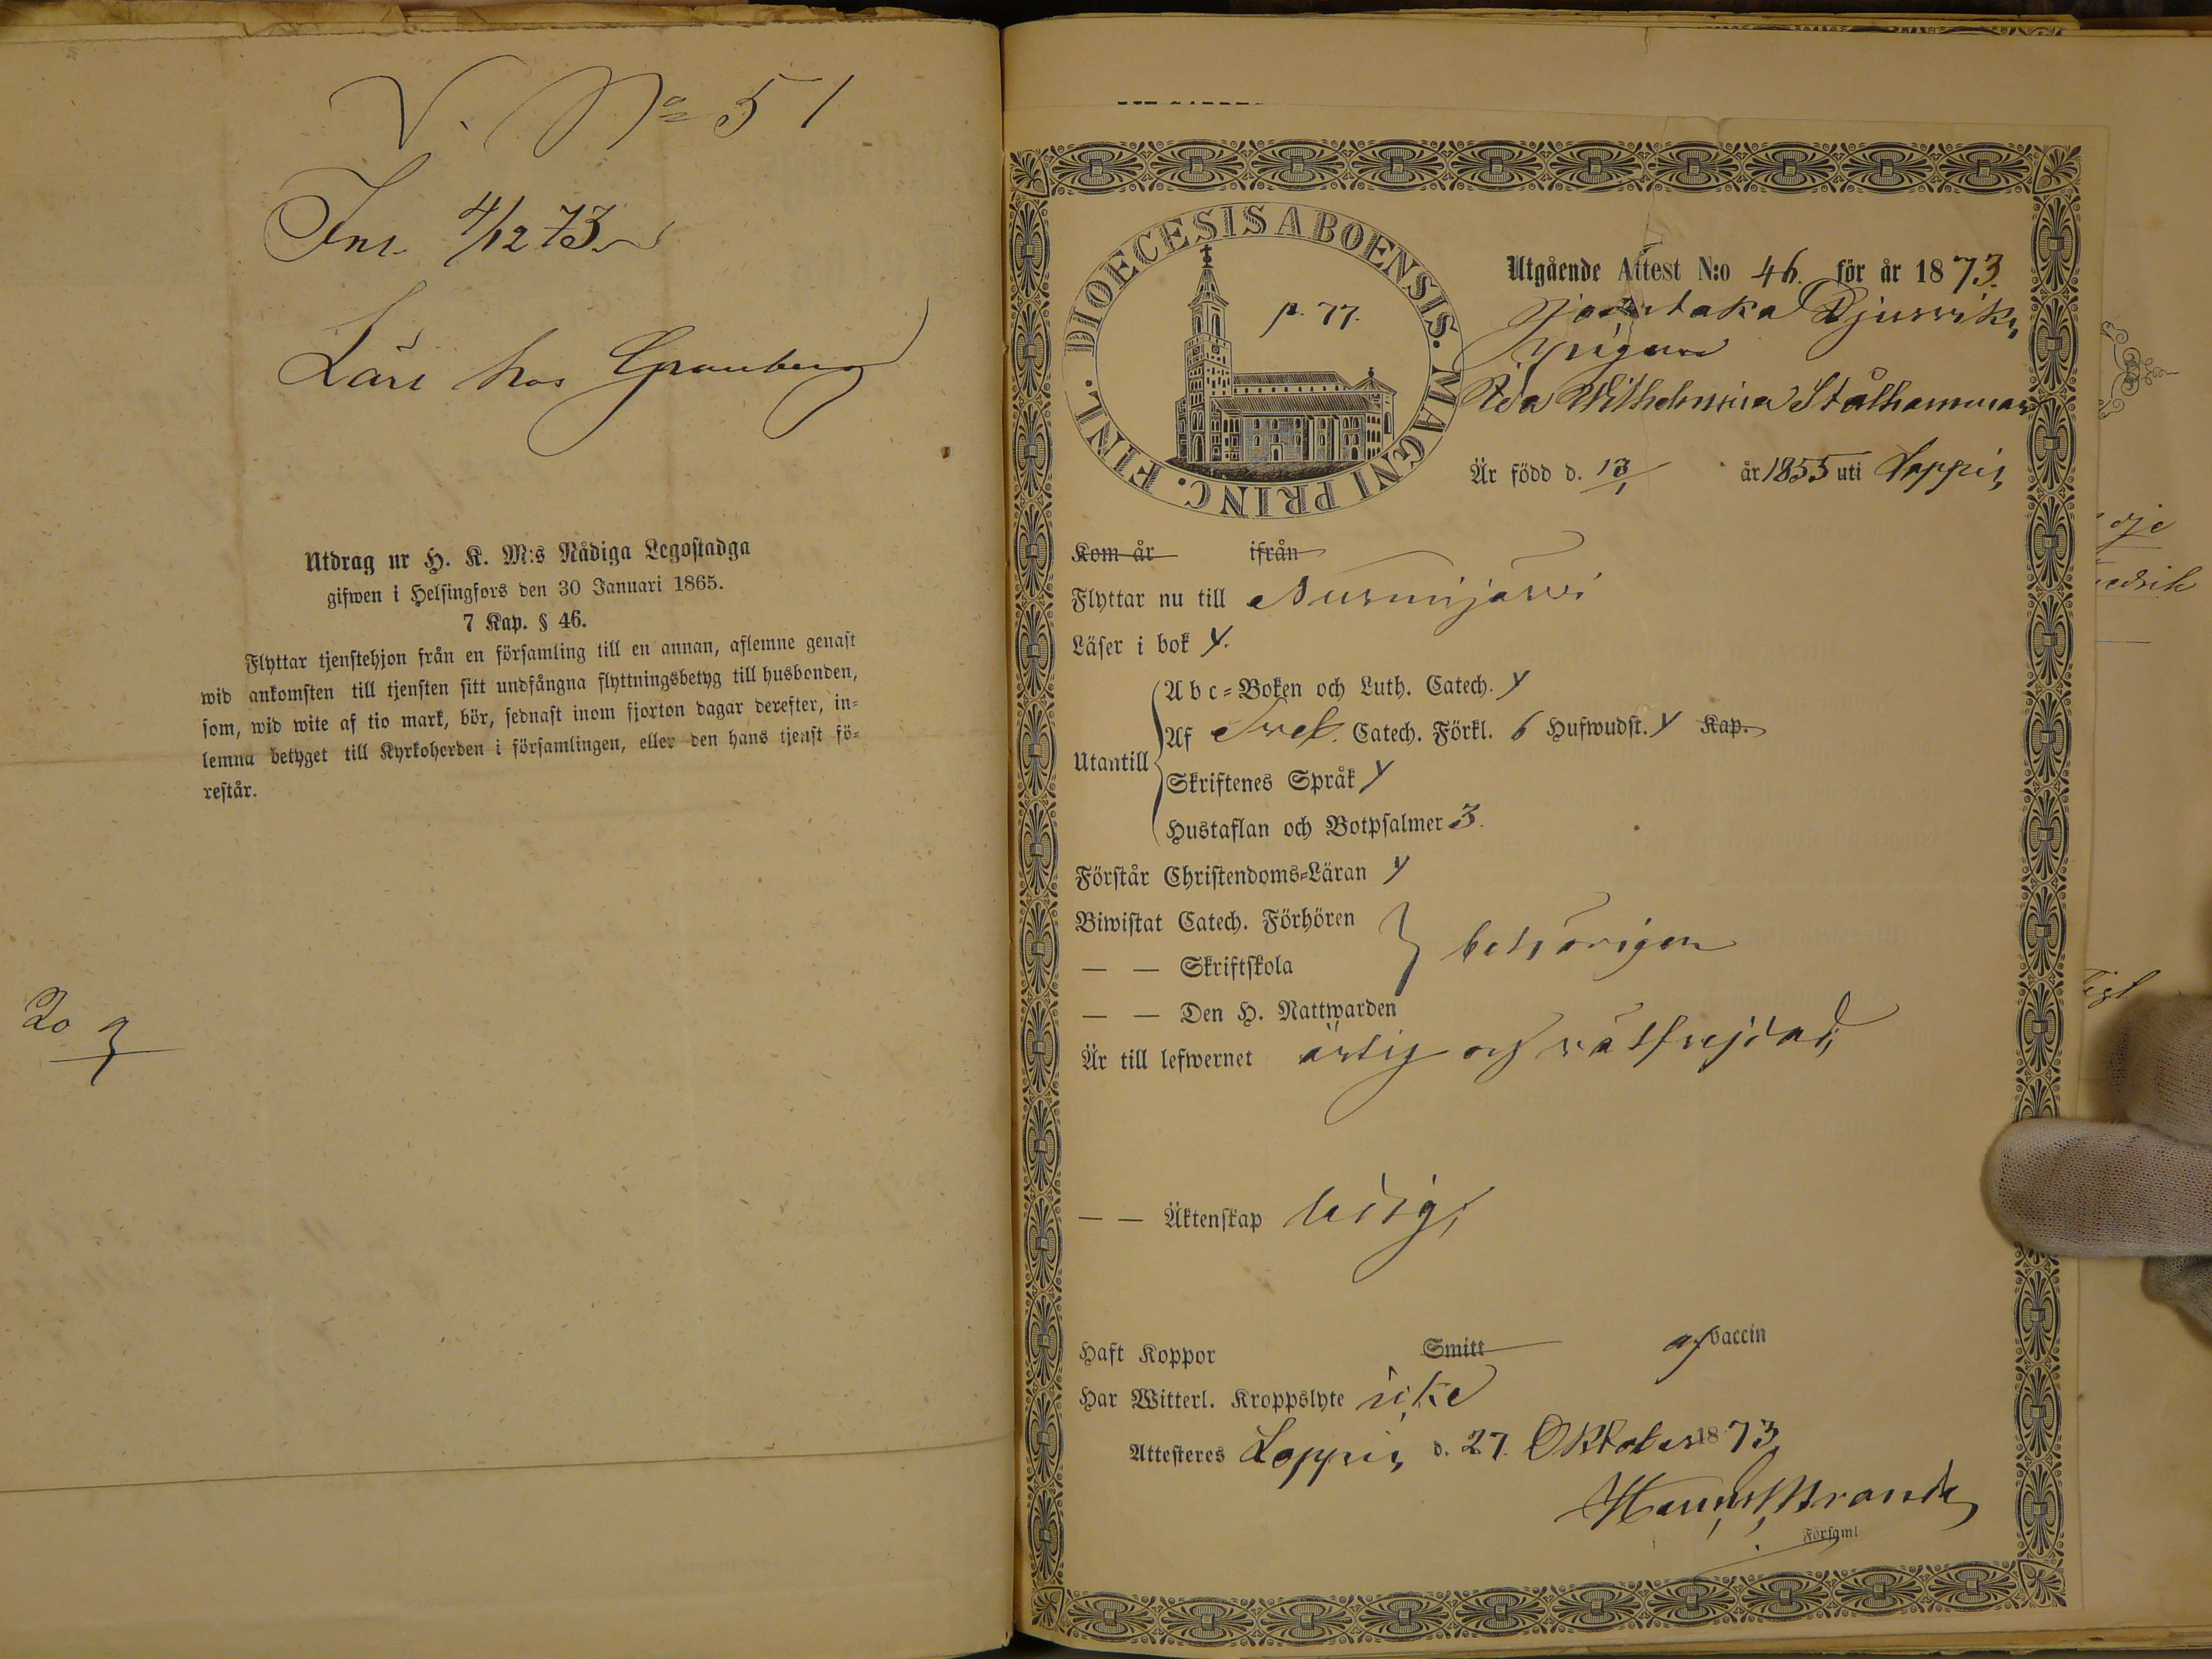 V. No 51
Inl. 4/12 73.
Lärl hos Granberg
Utdrag ur H. K. M:s Nådiga Legostadga
gifwen i Helsingfors den 30 Januari 1865.
7 Kap. § 46.
Flyttar tjenstehjon från en församling till en annan, aflemne genast
wid ankomsten till tjensten sitt undfångna flyttningsbetyg till husbonden,
som, wid wite af tio mark, bör, sednast inom fjorton dagar derefter, in-
lemna betyget till Kyrkoherden i församlingen, eller den hans tjenst fö-
restår.
20
DIOECESIS ABOENSIS. MAGNI PRINC. FINL.
p. 77.
Utgående Attest N:o 46. för år 1873.
pigan
Ida Wilhelmina Stålhammar
Är född d. 13/ år 1855 uti Loppis
Kom år ifrån
Flyttar nu till Nurmijärvi
Läser i bok y.
Abc-Boken och Luth. Catech. y
Utantill
Af Sveb. Catech. Förkl. 6 Hufwudst. y Kap.
Skriftenes Språk y
Hustaflan och Botpsalmer 3.
Förstår Christendoms-Läran y
Biwistat Catech. Förhören
— — Skriftskola
behörigen
— — Den H. Nattwarden
Är till lefwernet ärlig och välfrejdad,
— — Äktenskap ledig,
Haft Koppor Smitt af vaccin
Har Witterl. Kroppslyte icke
Attesteres Loppis d. 27. Oktober 1873
Församl